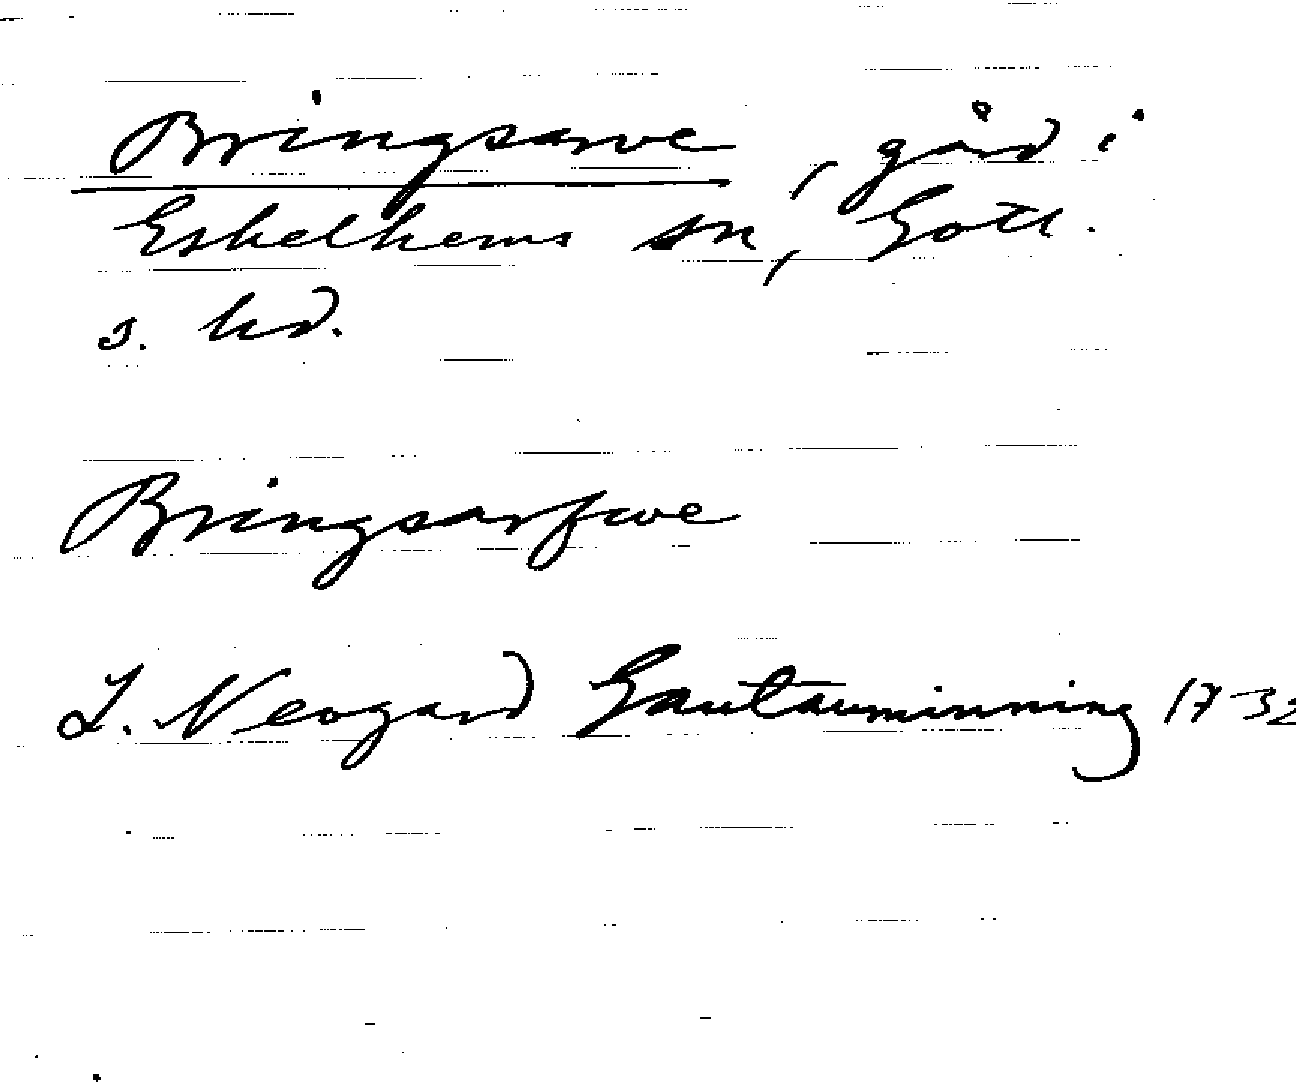 Bringsarve, gård i
Eskelhems sn, Gotl.
s. hd.
Bringsarfwe
L. Neogard Gautauminning 1732